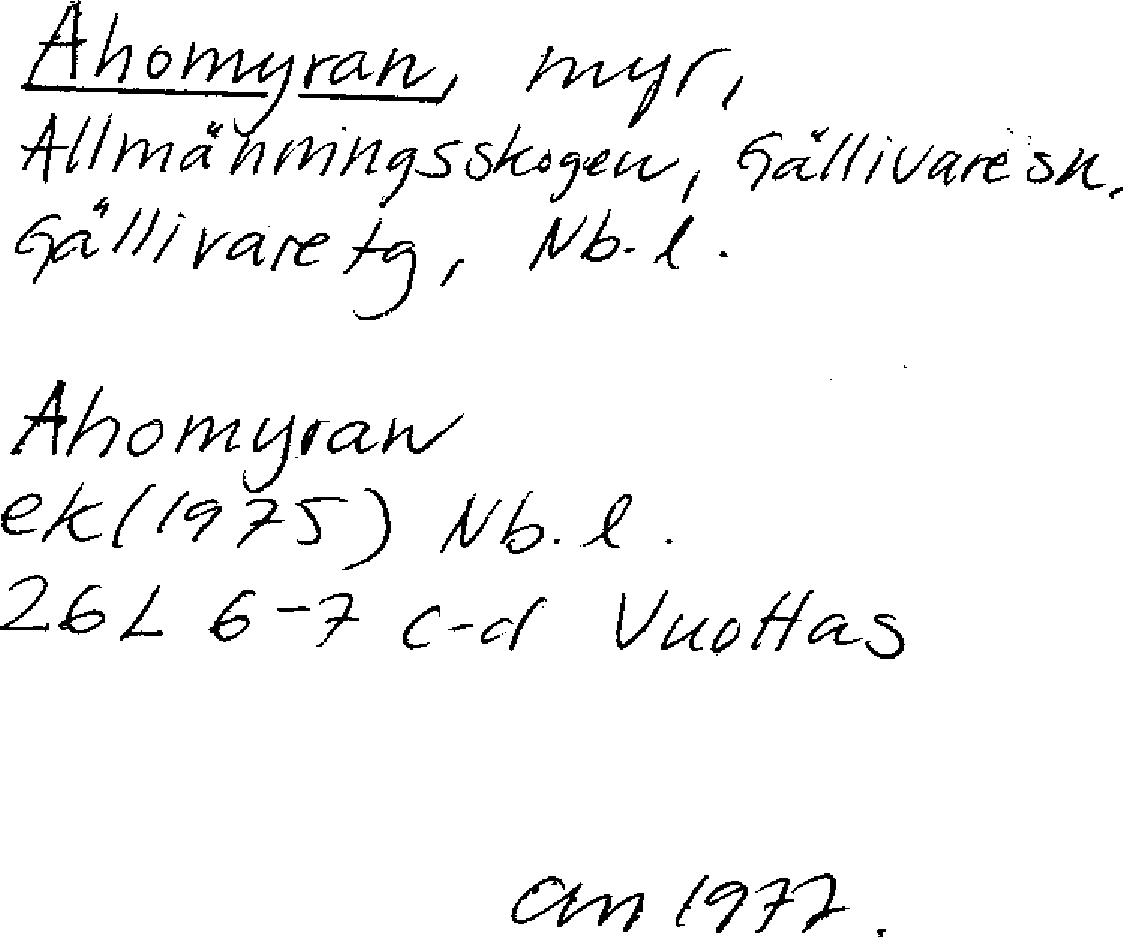 Ahomyran, myr,
Allmänningsskogen, Gällivare sn,
Gällivare tg, Nb. l.
Ahomyran
ek (1975) Nb. l.
26L 6-7 c-d Vuottas
1977.